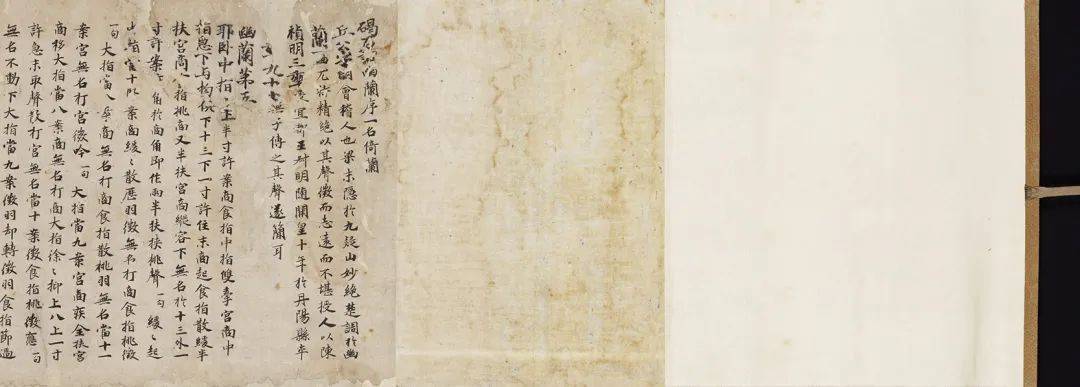 碣石調幽蘭序一名倚蘭
丘公字明會稽人也梁末隱於九疑山妙絕楚調於幽
蘭一曲尤特精絕以其聲微而志遠而不堪授人以陳
禎明三年授宜都王叔明隨開皇十年於丹陽縣卒
年九十七無子傳之其聲遂簡耳
幽蘭第五
耶卧中指々上半寸許案商食指中指雙牽宮商中
指急下与拘俱下十三下一寸許住末商起食指散緩半
扶宮商食指挑商又半扶宮商縱容下無名於十三外一
寸許案商角於商角即作兩半扶挾挑聲一句緩々起
指當十案商緩々散歷羽徵無名打商食指挑徵
一句大指當八案商無名打商食指散挑羽無名當十一
案宮無名打宮徵吟一句大指當九案宮商疾全扶宮
商移大指當八案商無名打商大指徐々抑上八上一寸
許急末取聲散打宮無名當十案徵食指挑徵應一句
無名不動下大指當九案徵羽却轉徵羽食指節過